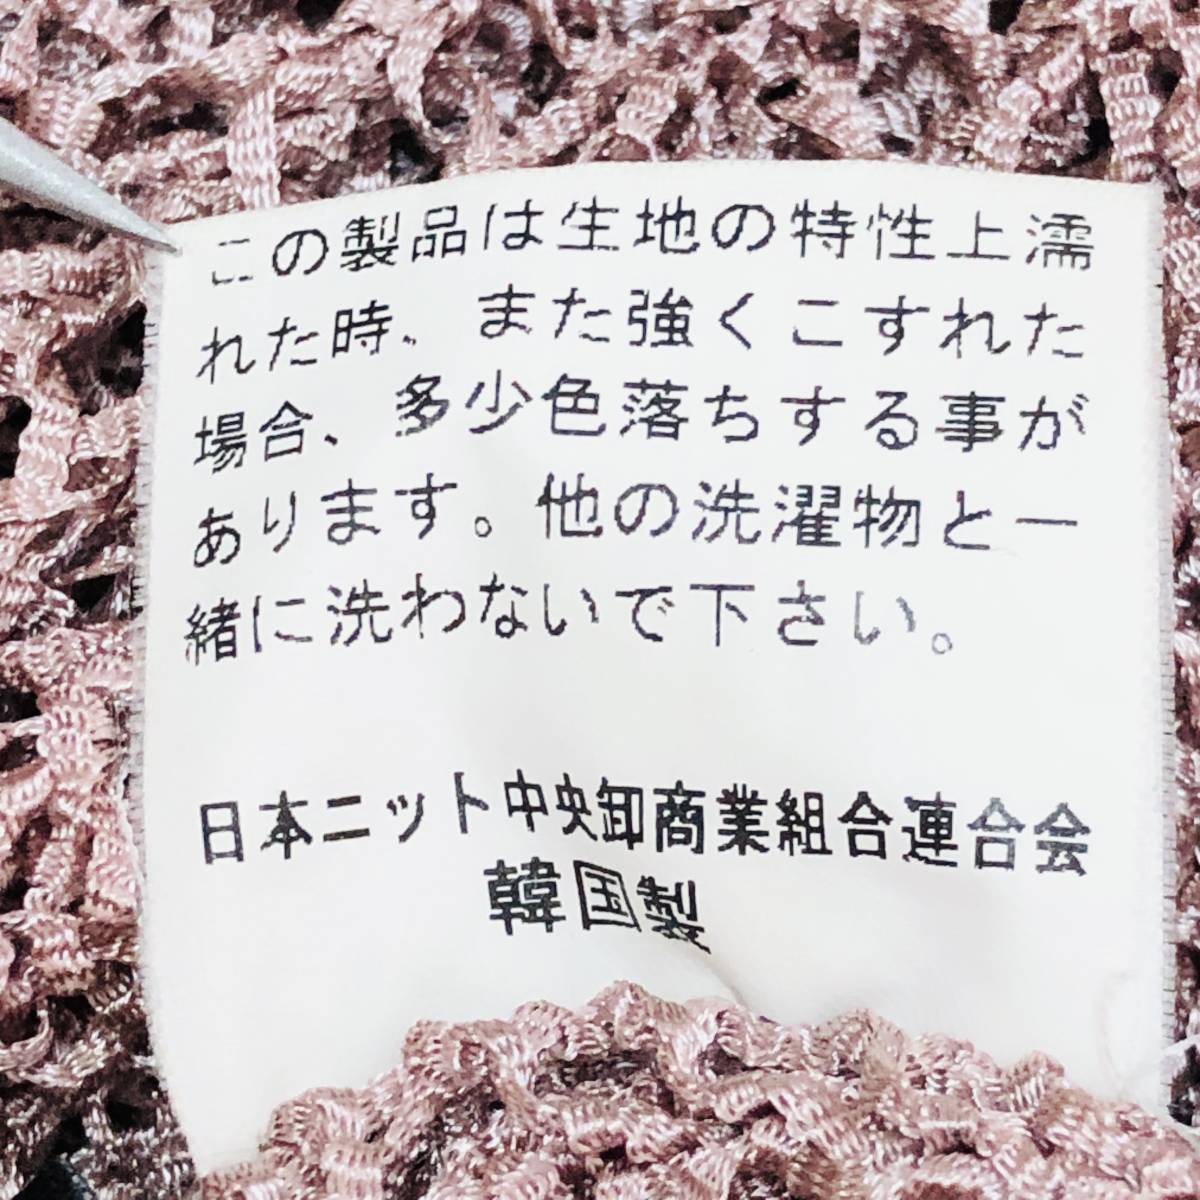 この製品は生地の特性上濡
れた時、また強くこすれた
場合、多少色落ちする事が
あります。他の洗濯物と一
緒に洗わないで下さい。
日本ニット中央卸商業組合連合会
韓国製